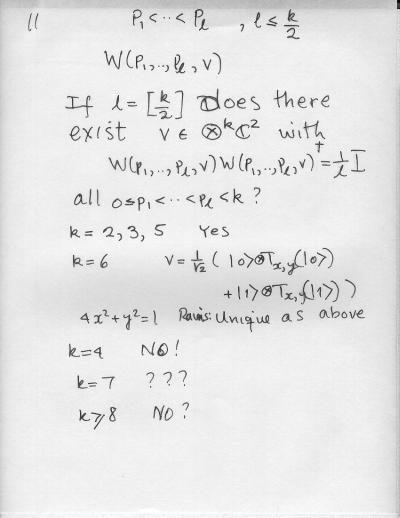 11 P₁ < ·· < Pₗ , l ≤ k/2
W(P₁, .., Pₗ, v)
If l = [k/2] Does there
exist v ∈ ⊗ᵏℂ² with
W(P₁, .., Pₗ, v) W(P₁, .., Pₗ, v)† = 1/l I
all 0≤P₁ < ·· < Pₗ < k ?
k = 2, 3, 5 Yes
k = 6 v = 1/√2 ( |0>⊗Tₓ,ᵧ(|0>)
+ |1>⊗Tₓ,ᵧ(|1>) )
4x² + y² = 1 Rains: Unique as above
k=4 NO!
k=7 ???
k≥8 NO?